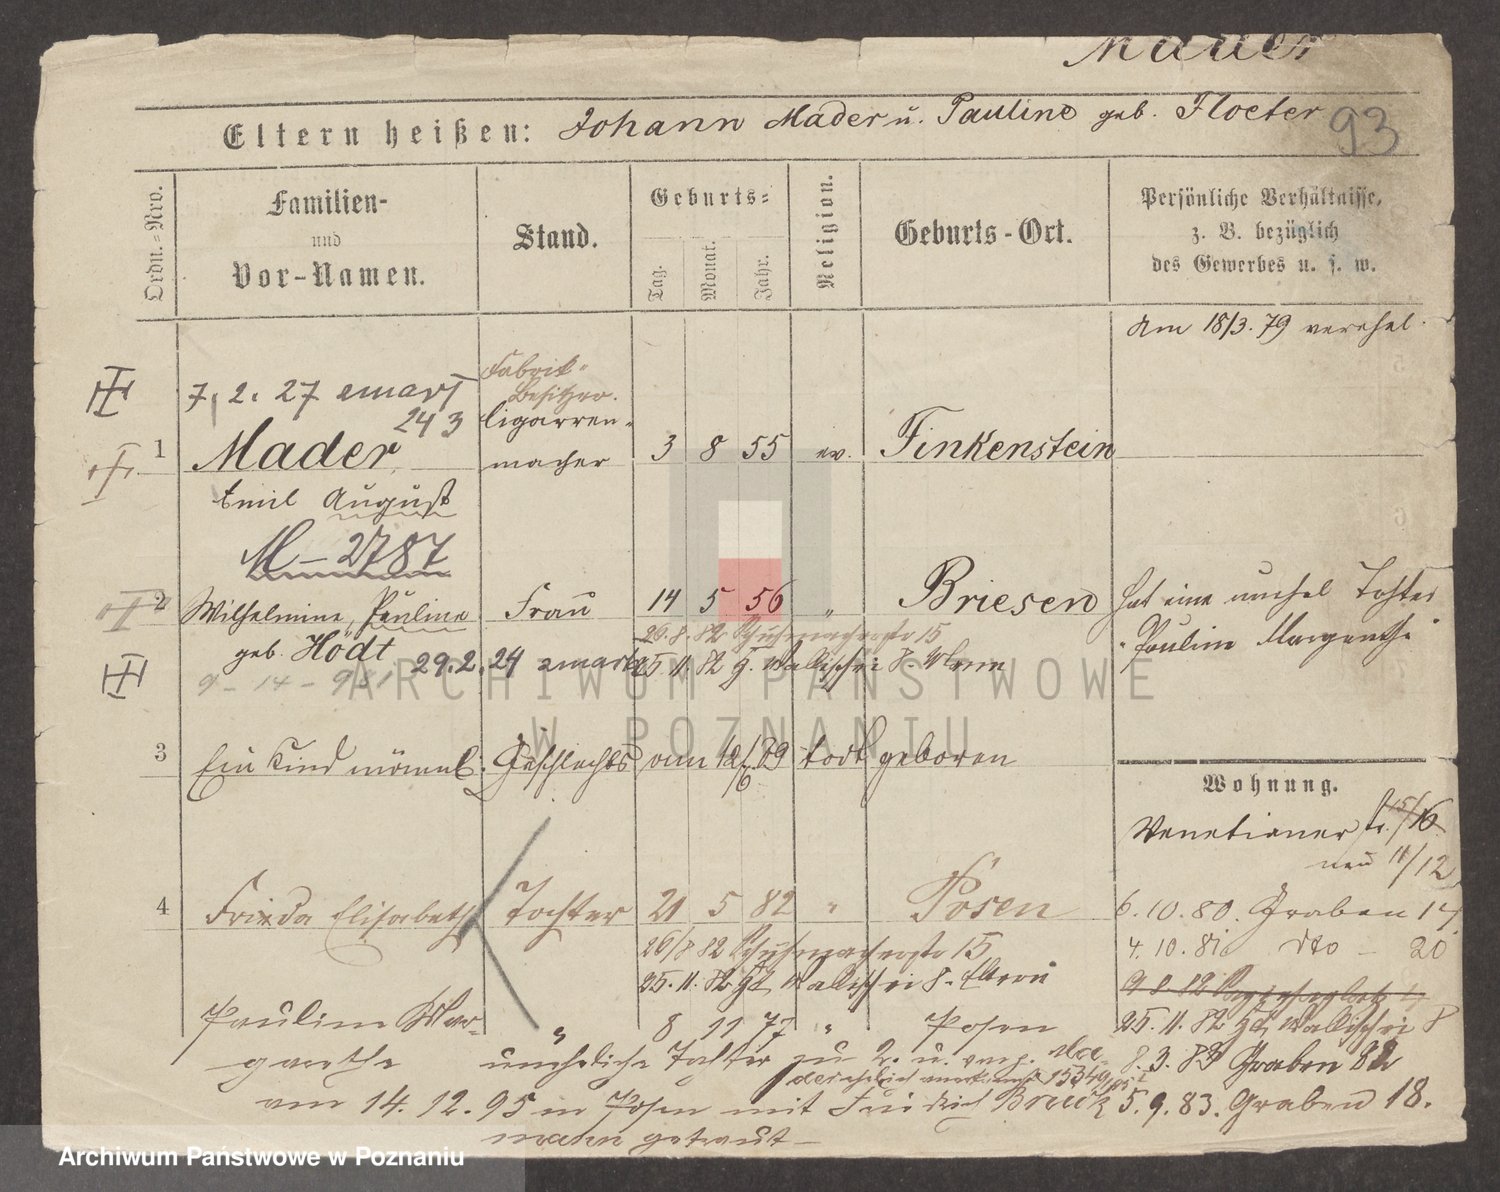 Mader
Eltern heißen: Johann Mader u. Pauline geb. Floeter
93
Ordn.-Nro.
Familien-
und
Vor-Namen.
Stand.
Geburts-
Tag.
Monat.
Jahr.
Religion.
Geburts-Ort.
Persönliche Verhältnisse,
z. B. bezüglich
des Gewerbes u. s. w.
Am 18/3. 79 verehel.
7. 2. 27
243
Fabrik-
Besitzer.
1 Mader Cigarren- 3 8 55 ev. Finkenstein
macher
Emil August
M-2787
2 Wilhelmine, Pauline Frau 14 5 56 " Briesen
hat eine unehel Tochter
"Pauline Margarethe"
geb. Hödt
26. 8. 82 Schuhmacherstr 15
29.2.24
25. 11. 82 Wallischei 8
9-14-981
3 Ein Kind männl. Geschlechts am 12/6 79 todt geboren
Wohnung.
Venetianer str. 15/16
neu 11/12
4 Frieda Elisabeth Tochter 21 5 82 " Posen
6. 10. 80. Graben 17.
4. 10. 81 dto - 20
26/8 82 Schuhmacherstr 15
25. 11. 82 Wallischei 8.
25. 11. 82 Wallischei 8
Pauline Mar-
garethe
" 8 11 77 " Posen
uneheliche Tochter zu 2. u.
8. 3. 83 Graben 82
am 14. 12. 95 in Posen mit Friedrich Bruck
5. 9. 83. Graben 18.
mann getraut-
ARCHIWUM PAŃSTWOWE
W POZNANIU
Archiwum Państwowe w Poznaniu